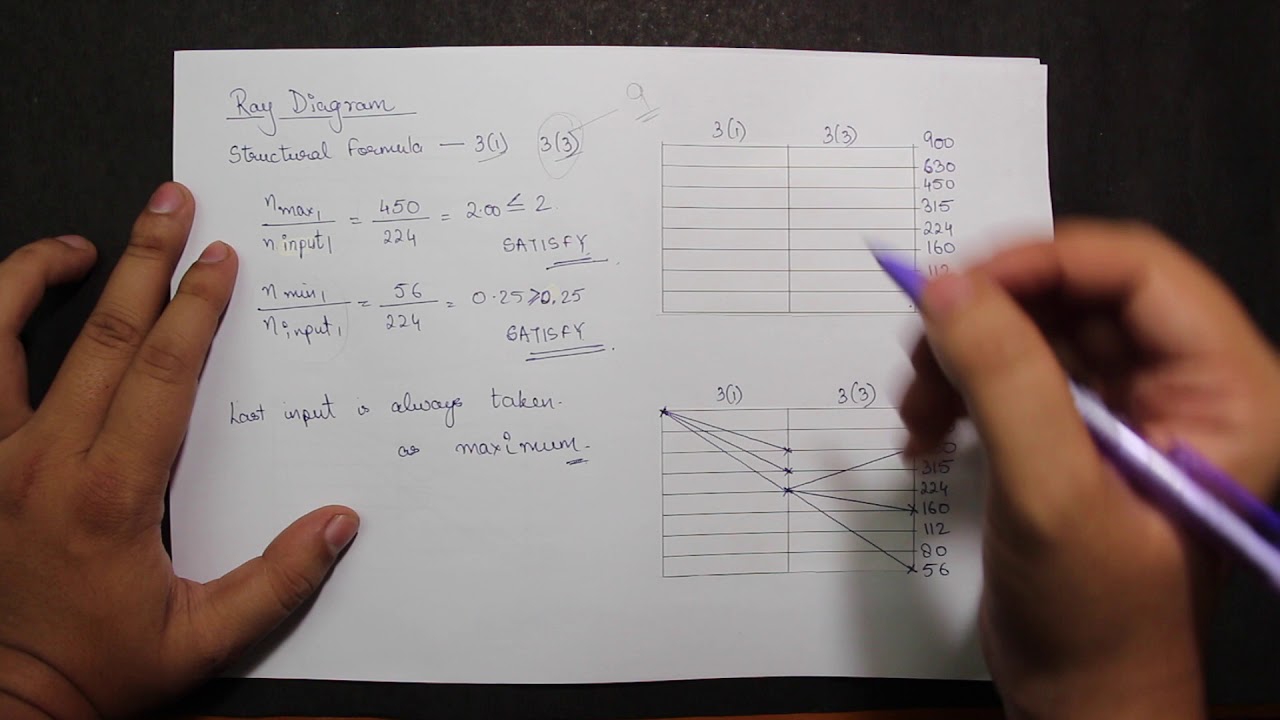 Ray Diagram
Structural formula — 3(1) 3(3) 9
n max1 / n input1 = 450 / 224 = 2.00 ≤ 2.
SATISFY
n min1 / n input1 = 56 / 224 = 0.25 ≥ 0.25
SATISFY
Last input is always taken.
as maximum.
3(1) 3(3) 900
630
450
315
224
160
112
3(1) 3(3)
315
224
160
112
80
56